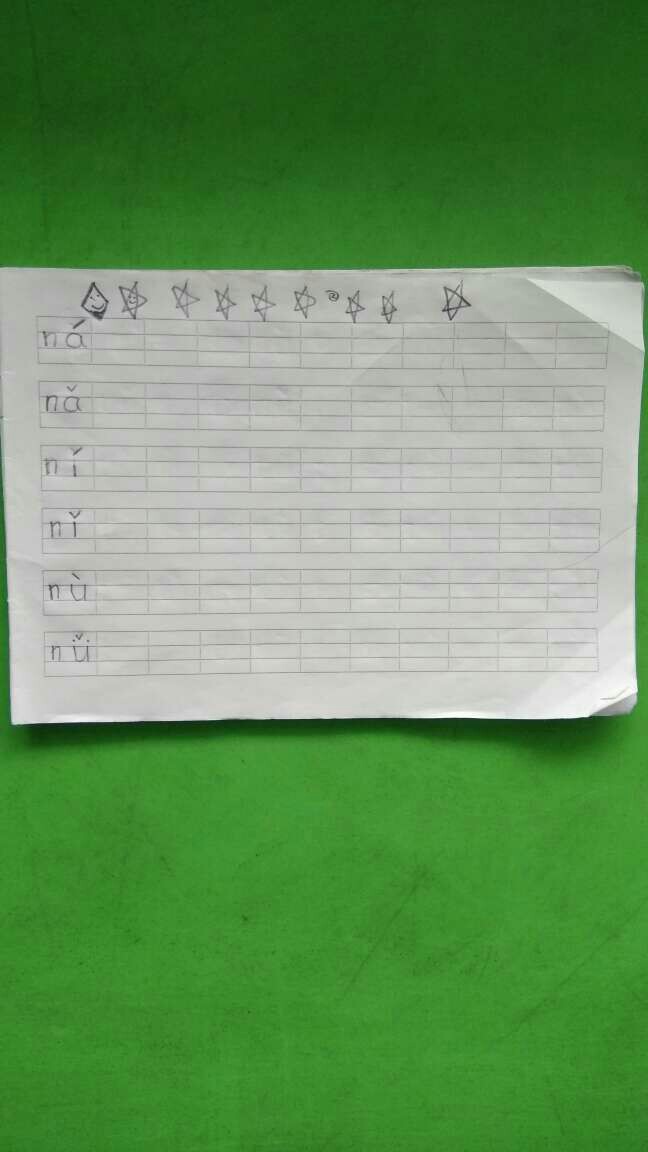 ná
nǎ
ní
nǐ
nù
nǚ